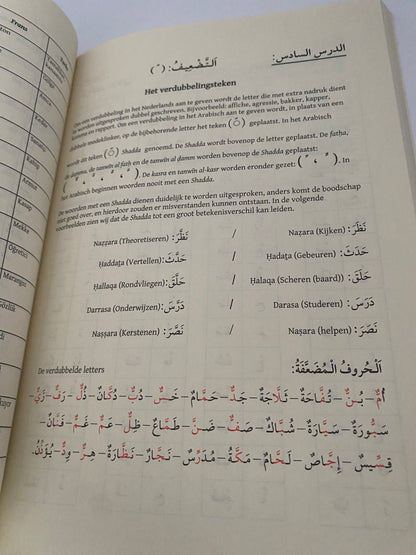 الدرس السادس:
اَلتَّضْعِيفُ: ( ّ )
Het verdubbelingsteken
Om een verdubbeling in het Nederlands aan te geven wordt de letter die met extra nadruk dient
te worden uitgesproken dubbel geschreven. Bijvoorbeeld: affiche, agressie, bakker, kapper,
komma en rapport. Om een verdubbeling in het Arabisch aan te geven wordt, in plaats van een
dubbele medeklinker, op de bijbehorende letter het teken ( ّ ) geplaatst. In het Arabisch
wordt dit teken ( ّ ) Shadda genoemd. De Shadda wordt bovenop de letter geplaatst. De fatḥa,
de ḍamma, de tanwīn al fatḥ en de tanwīn al ḍamm worden bovenop de Shadda geplaatst:
De kasra en tanwīn al-kasr worden eronder gezet: In
het arabisch beginnen woorden nooit met een Shadda.
De woorden met een Shadda dienen duidelijk te worden uitgesproken, anders komt de boodschap
niet goed over, en hierdoor zouden er misverstanden kunnen ontstaan. In de volgende
voorbeelden zien wij dat de Shadda tot een groot betekenisverschil kan leiden.
Naẓẓara (Theoretiseren) نَظَّرَ: / Naẓara (Kijken) نَظَرَ:
Ḥaddaṯa (Vertellen) حَدَّثَ: / Ḥadaṯa (Gebeuren) حَدَثَ:
Ḥallaqa (Rondvliegen) حَلَّقَ: / Ḥalaqa (Scheren (baard)) حَلَقَ:
Darrasa (Onderwijzen) دَرَّسَ: / Darasa (Studeren) دَرَسَ:
Naṣṣara (Kerstenen) نَصَّرَ: / Naṣara (helpen) نَصَرَ:
De verdubbelde letters اَلْحُرُوفُ الْمُضَعَّفَةُ:
أُمٌّ – بُنٌّ – تُفَّاحَةٌ – ثَلَّاجَةٌ – جَدٌّ – حَمَّامٌ – خَسٌّ – دُبٌّ – دُكَّانٌ – ذُلٌّ – رَفٌّ – زَيٌّ –
سَبُّورَةٌ – سَيَّارَةٌ – شُبَّاكٌ – صَفٌّ – ضَنٌّ – طَمَّاعٌ – ظِلٌّ – عَمٌّ – غَمٌّ – فَنَّانٌ –
قِسِّيسٌ – إِجَّاصٌ – لَحَّامٌ – مَكَّةُ – مُدَرِّسٌ – نَجَّارٌ – نَظَّارَةٌ – هِرٌّ – وِدٌّ – يُؤَذِّنُ.
Frans